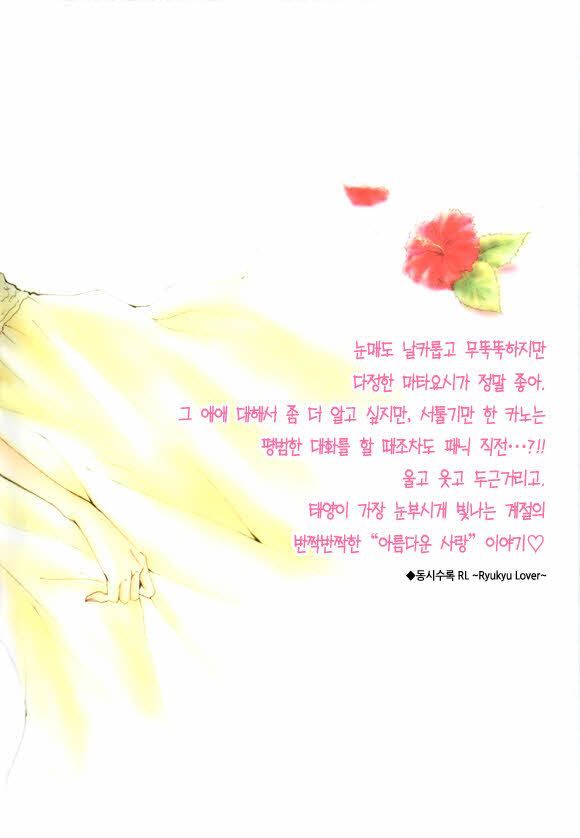 눈매도 날카롭고 무뚝뚝하지만
다정한 마타요시가 정말 좋아.
그 애에 대해서 좀 더 알고 싶지만, 서툴기만 한 카노는
평범한 대화를 할 때조차도 패닉 직전…?!!
울고 웃고 두근거리고,
태양이 가장 눈부시게 빛나는 계절의
반짝반짝한 “아름다운 사랑” 이야기♡
◆동시수록 RL ~Ryukyu Lover~